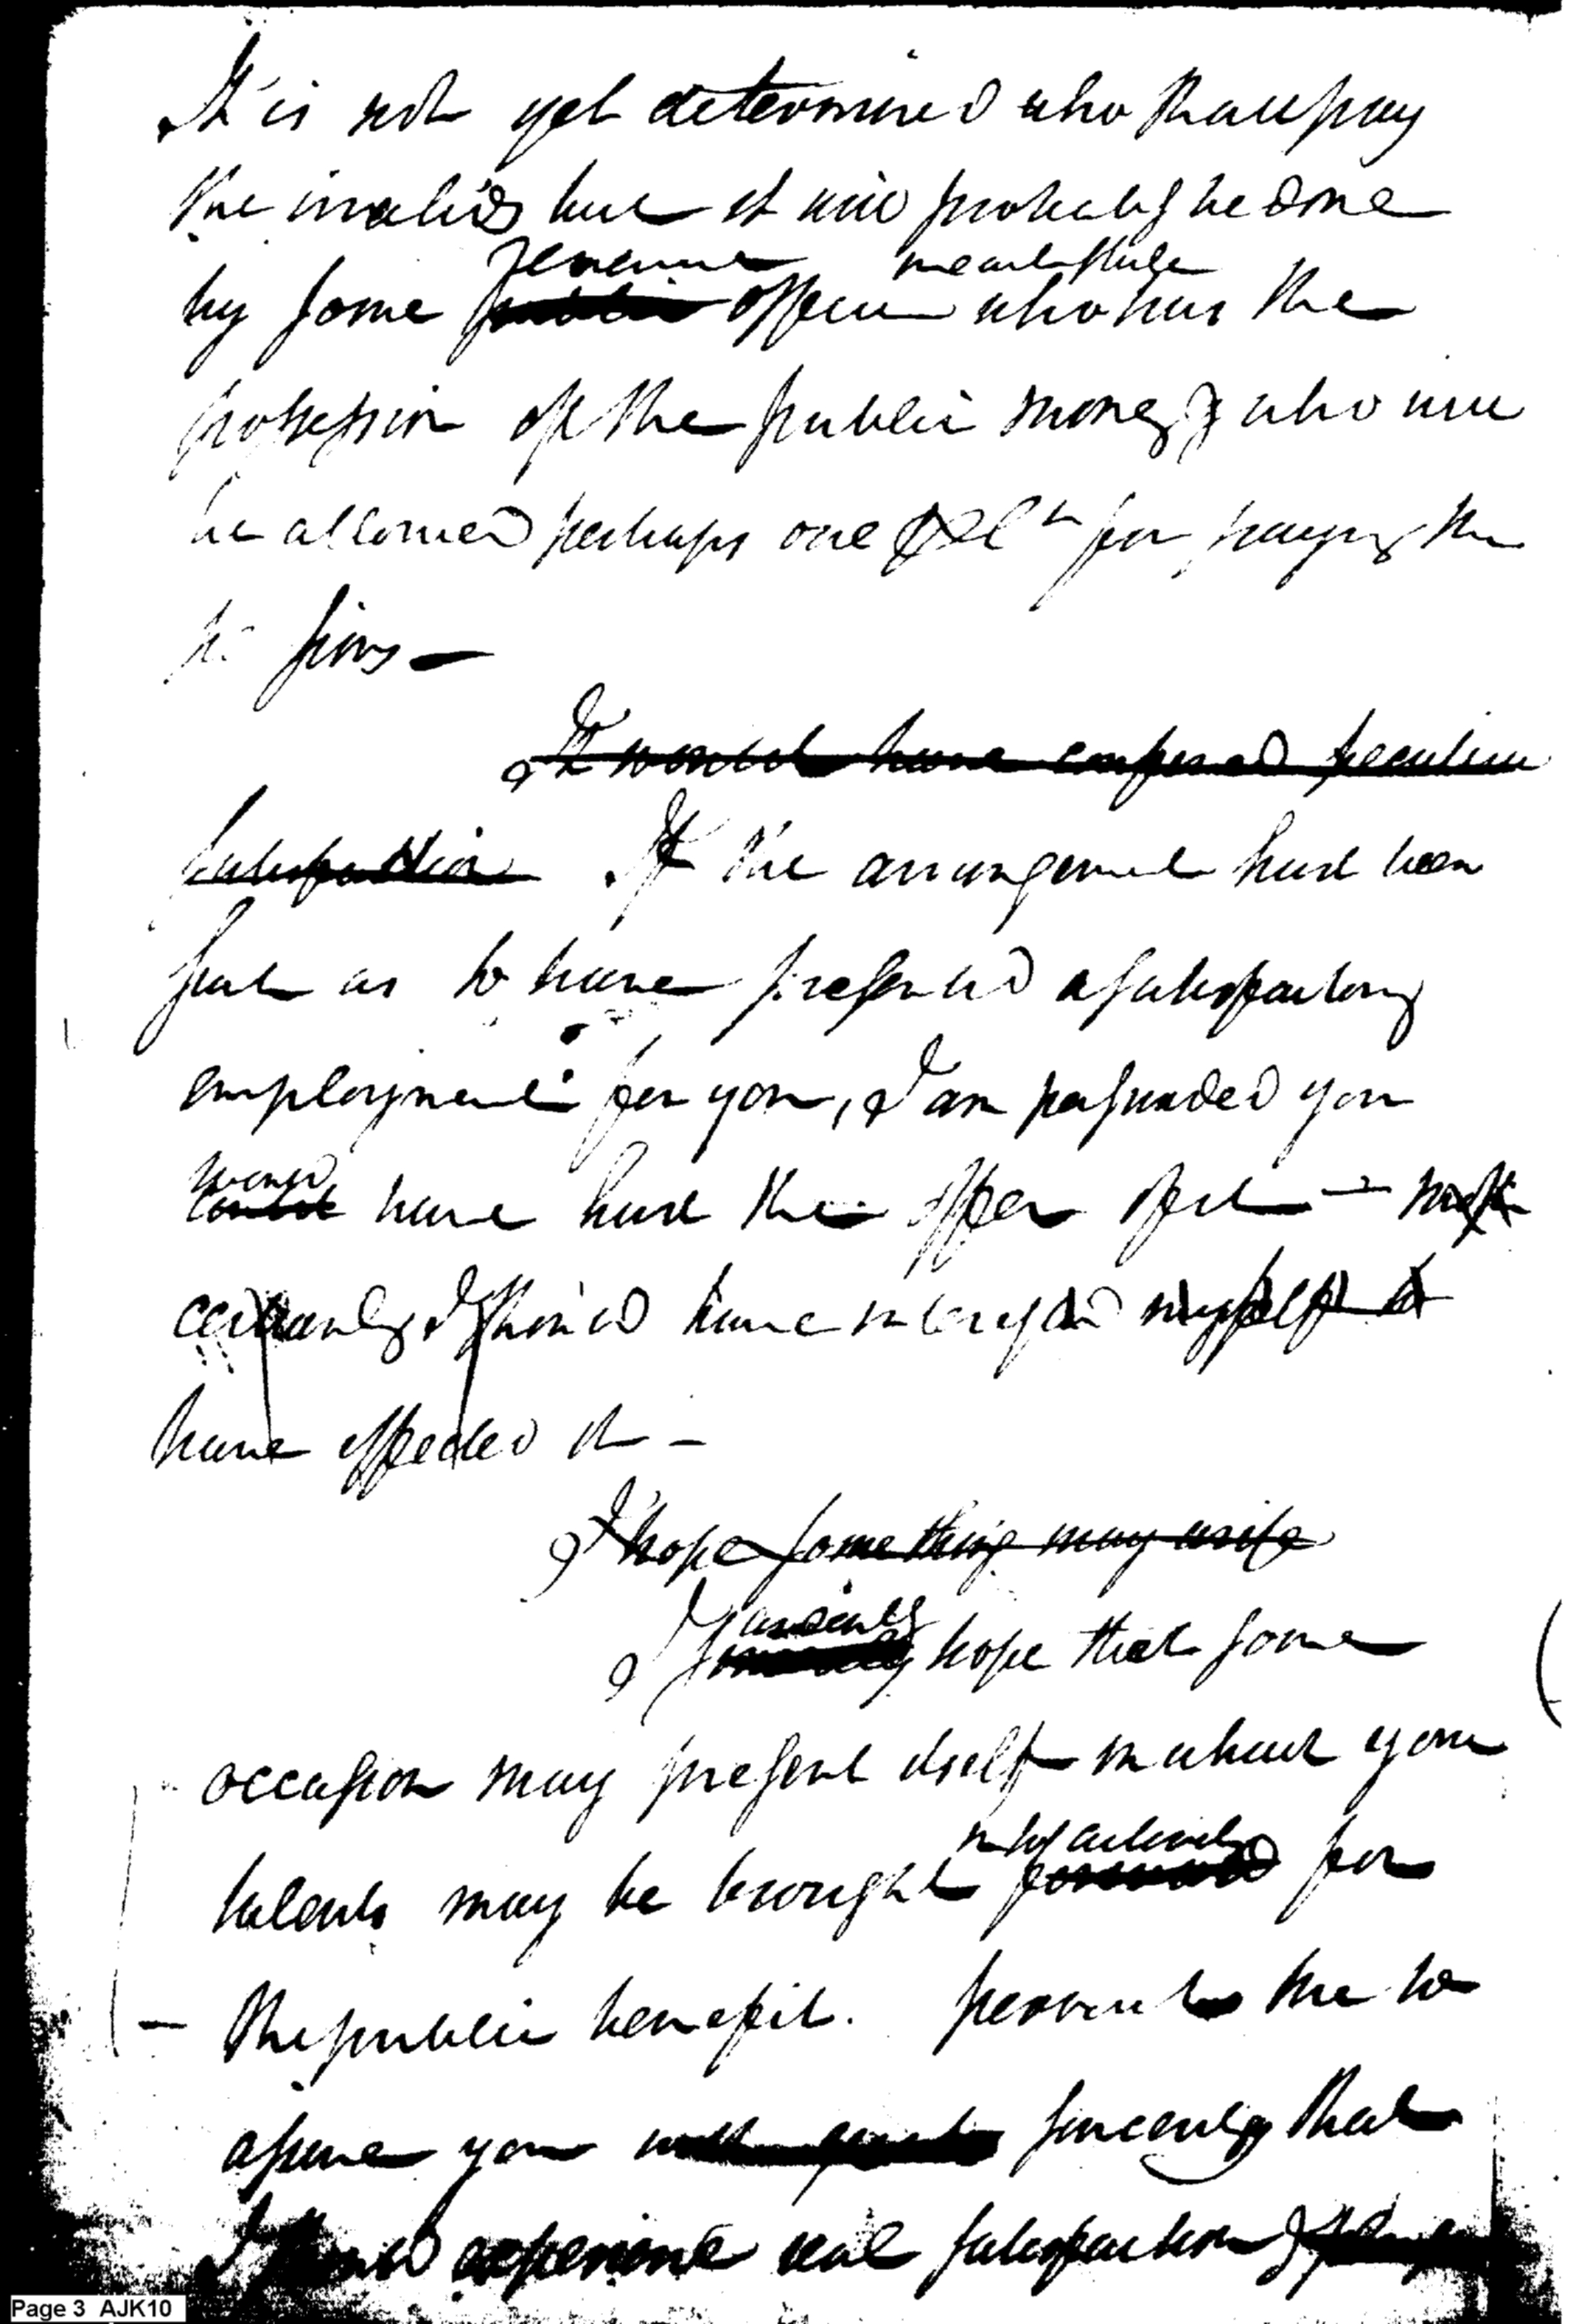 It is not yet determined who shall pay
the invalids but it will probably be done
revenue
by some public officer who has the
possession of the public money & who will
be allowed perhaps one for paying the
sions —
I would have confered peculiar
satisfaction If the arrangement had been
such as to have presented a satisfactory
employment for you, I am persuaded you
would
could have had the offer of it — most
certainly I should have interested myself to
have effected it —
I hope something may arise
ardently
I hope that some
occasion may present itself in which your
talents may be brought forward for
into activity
the public benefit. permit me to
assure you with great sincerity that
I should experience real satisfaction
Page 3 AJK10